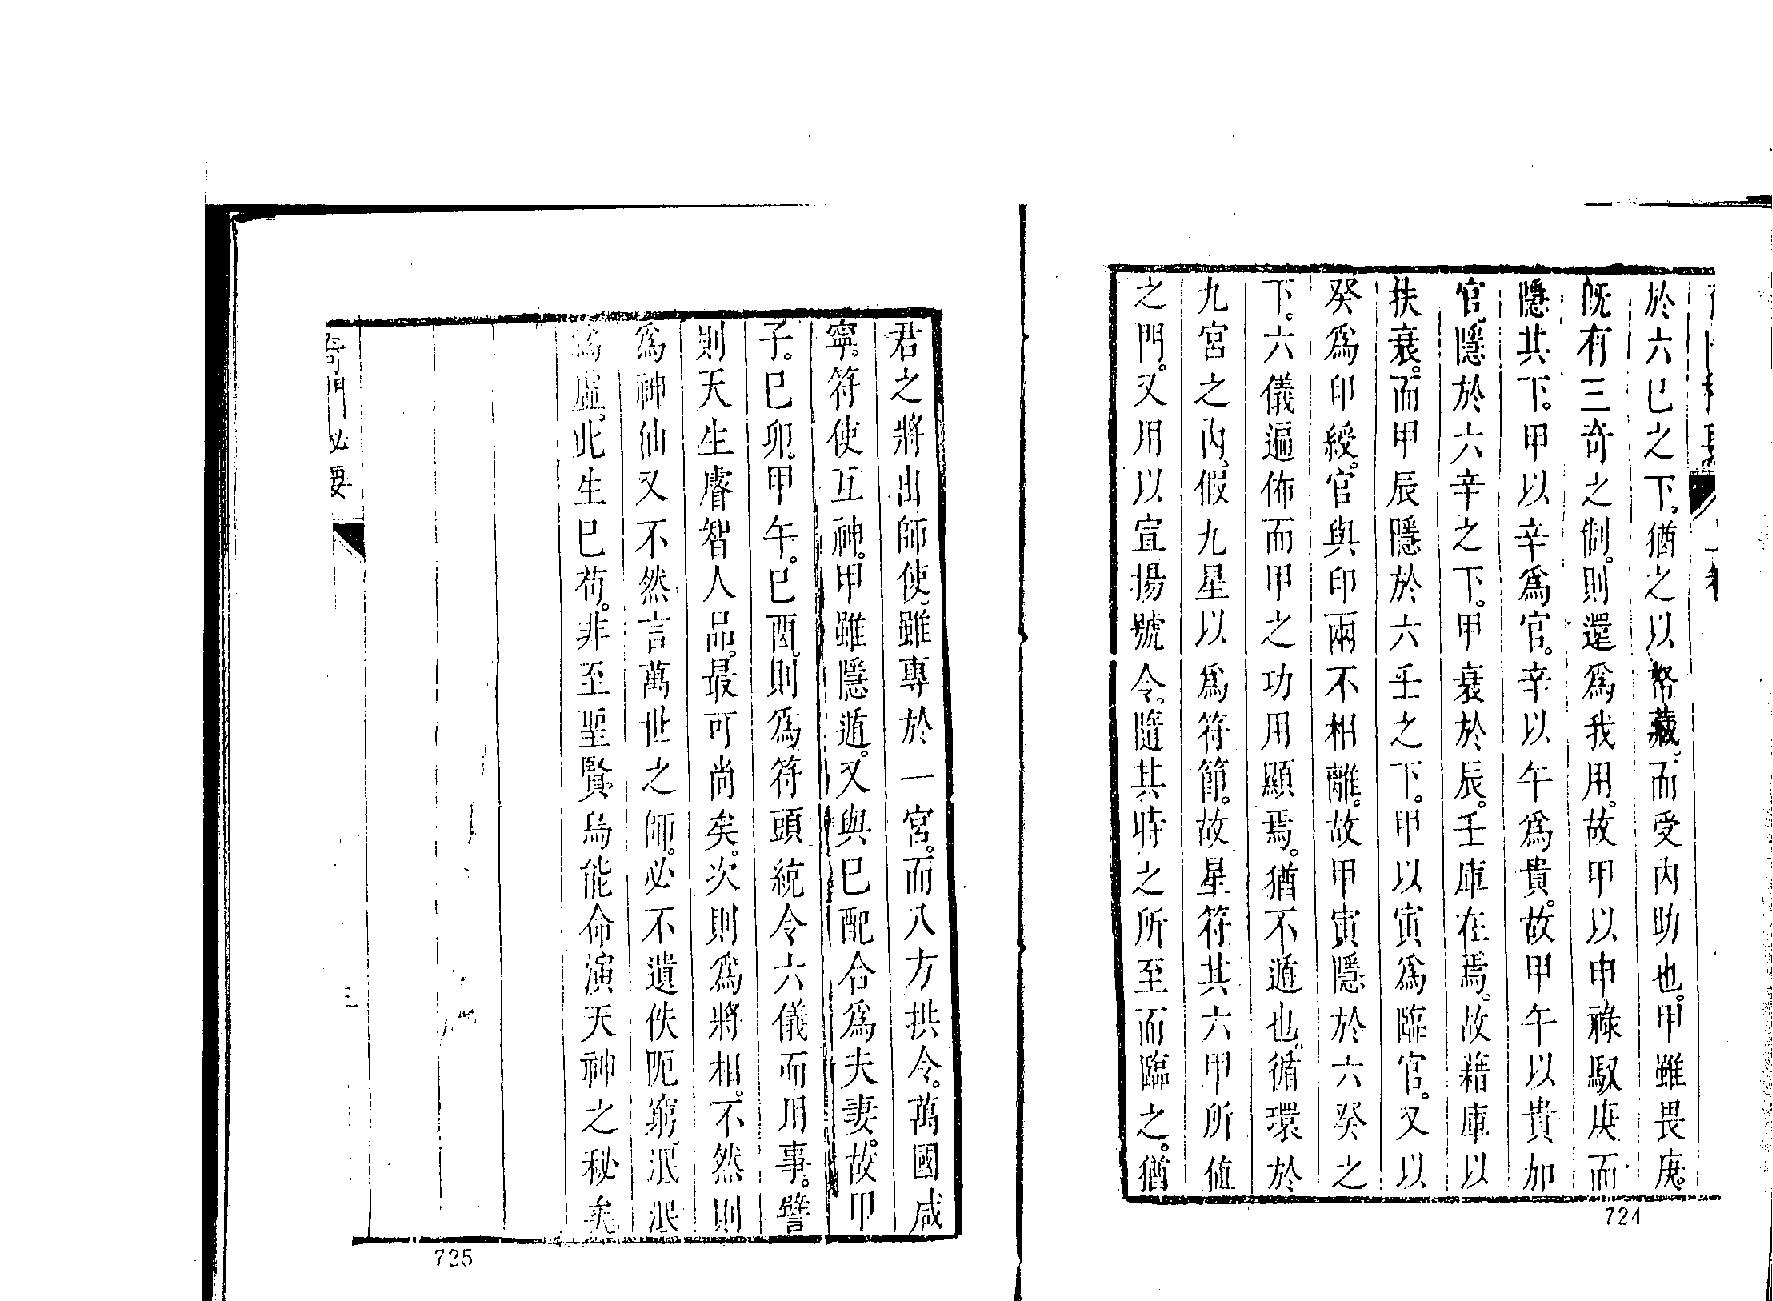 於六己之下。猶之以帑藏。而受內助也。甲雖畏庚。
旣有三奇之制。則還爲我用。故甲以申祿馭庚而
隱其下。甲以辛爲官。辛以午爲貴。故甲午以貴加
官。隱於六辛之下。甲衰於辰。壬庫在焉。故藉庫以
扶衰。而甲辰隱於六壬之下。甲以寅爲臨官。又以
癸爲印綬。官與印兩不相離。故甲寅隱於六癸之
下。六儀遍佈而甲之功用顯焉。猶不遁也。循環於
九宮之內。假九星以爲符節。故星符其六甲所値
之門。又用以宣揚號令。隨其時之所至而臨之。猶
724
君之將出師使。雖專於一宮。而八方拱令。萬國咸
寧。符使互神。甲雖隱遁。又與己配合爲夫妻。故甲
子。己卯。甲午。己酉。則爲符頭統令六儀而用事。譬
則天生睿智人品。最可尚矣。次則爲將相。不然則
爲神仙又不然言萬世之師。必不遺佚阨窮泯泯
爲虛。此生已苟。非至聖賢烏能命演天神之秘矣
奇門必要
三
725